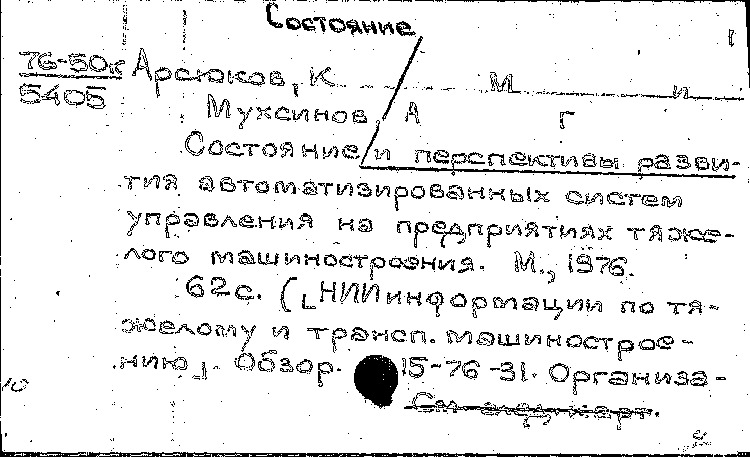 Состояние
1
76-50к Арсюков, К М и
5405 Мухсинов, А Г
Состояние и перспективы разви-
тия автоматизированных систем
управления на предприятиях тяже-
лого машиностроения. М., 1976.
62с. (ЦНИИинформации по тя-
желому и трансп. машинострое-
нию). Обзор. 15-76-31. Организа-
См след карт.
10